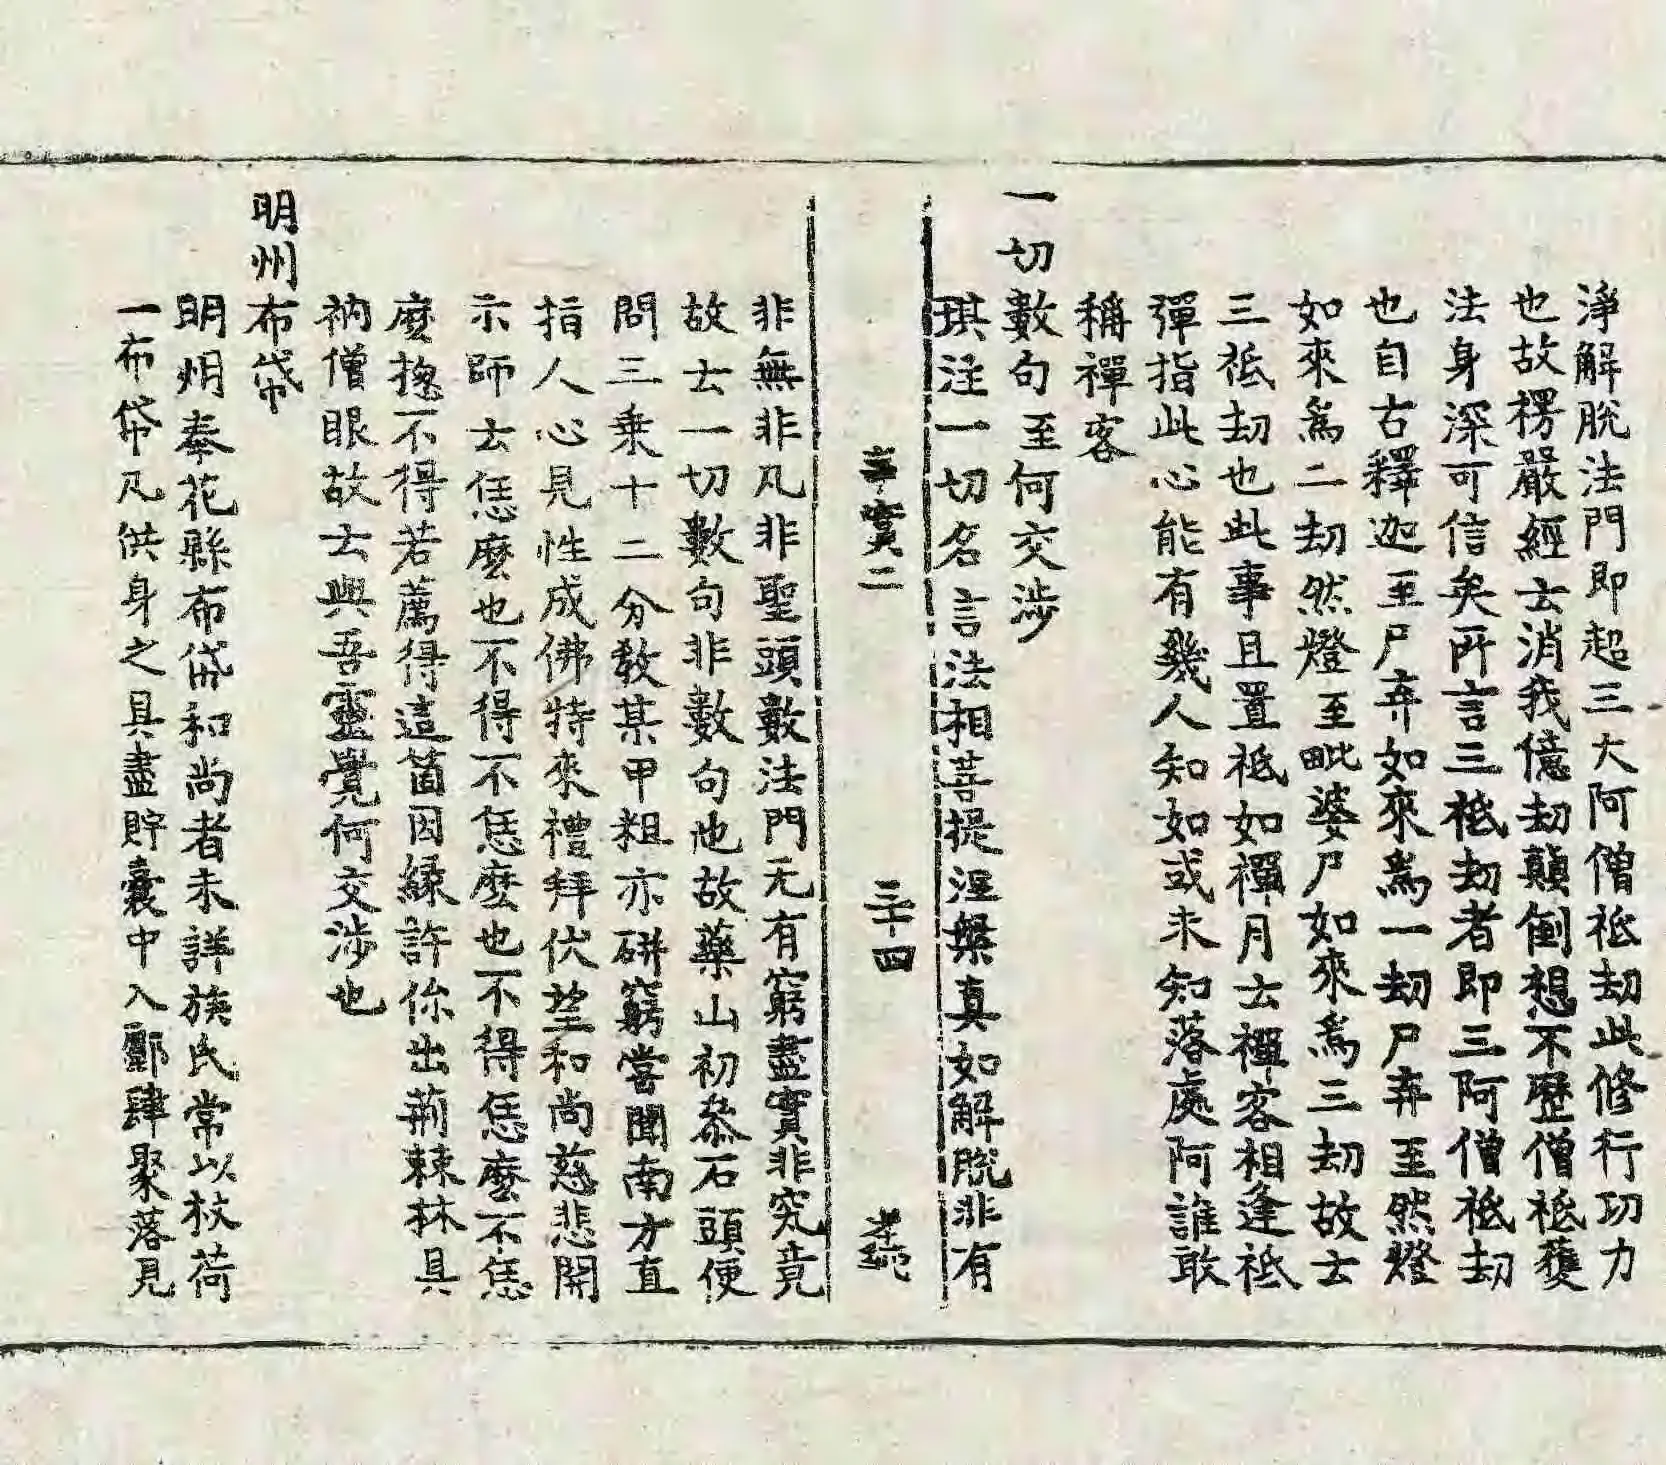 淨解脫法門即超三大阿僧祇劫此修行功力
也故楞嚴經云消我億劫顛倒想不歷僧祇獲
法身深可信矣所言三祇劫者即三阿僧祇劫
也自古釋迦至尸弃如來爲一劫尸弃至然燈
如來爲二劫然燈至毗婆尸如來爲三劫故云
三祇劫也此事且置祇如禪月云禪客相逢祇
彈指此心能有幾人知如或未知知落處阿誰敢
稱禪客
一切數句至何交涉
琪注一切名言法相菩提涅槃真如解脫非有
事實二
三十四
非無非凡非聖頭數法門无有窮盡實非究竟
故云一切數句非數句也故藥山初叅石頭便
問三乘十二分教某甲粗亦研窮嘗聞南方直
指人心見性成佛特來禮拜伏望和尚慈悲開
示師云恁麼也不得不恁麼也不得恁麼不恁
麼揔不得若薦得這箇因緣許你出荊棘林具
衲僧眼故云與吾靈覺何交涉也
明州布帒
明州奉花縣布帒和尚者未詳族氏常以杖荷
一布帒凡供身之具盡貯囊中入酆肆聚落見